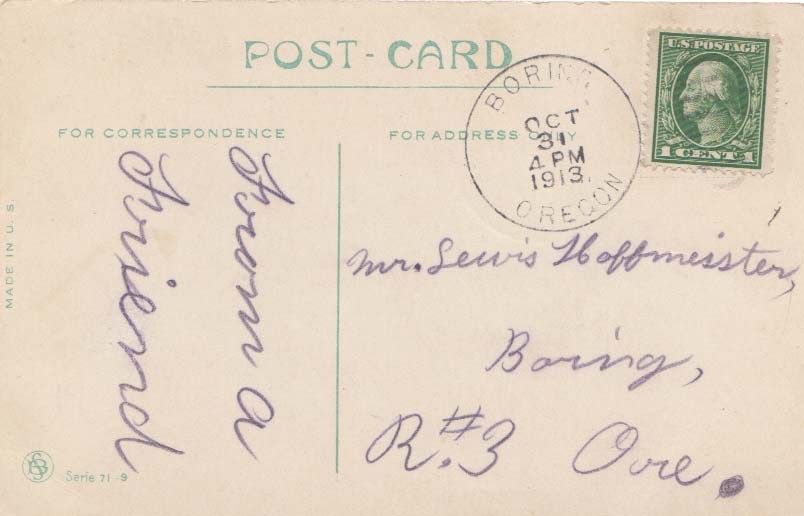 POST-CARD
U.S. POSTAGE
1 CENT 1
BORING
OCT
31
4 PM
1913
OREGON
FOR CORRESPONDENCE
FOR ADDRESS ONLY
From a
Friend
Mr. Lewis Hoffmeisster,
Boring,
R.#3 Ore.
MADE IN U.S
Serie 71-9